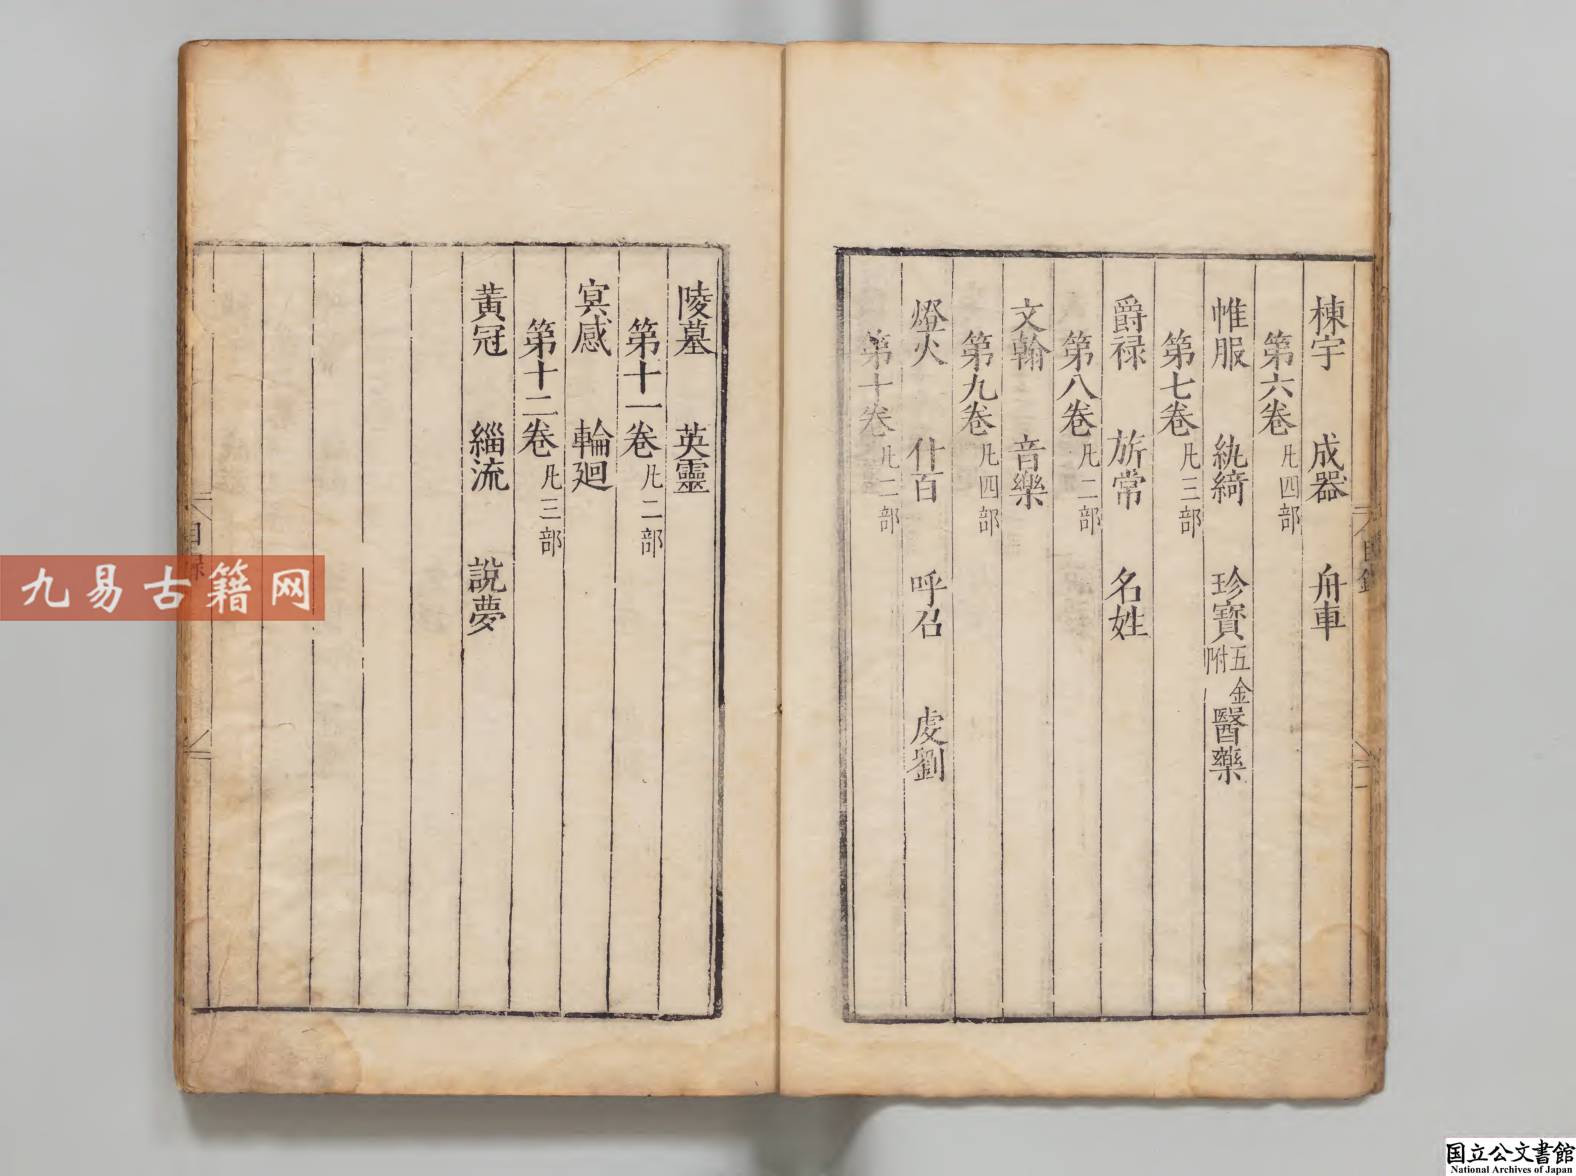 棟宇 成器 舟車
第六卷 凡四部
帷服 紈綺 珍寶 五金附 醫藥
第七卷 凡三部
爵祿 旂常 名姓
第八卷 凡二部
文翰 音樂
第九卷 凡四部
燈火 什百 呼召 虔劉
第十卷 凡二部
陵墓 英靈
第十一卷 凡二部
冥感 輪廻
第十二卷 凡三部
黃冠 緇流 說夢
目錄
九易古籍网
国立公文書館
National Archives of Japan